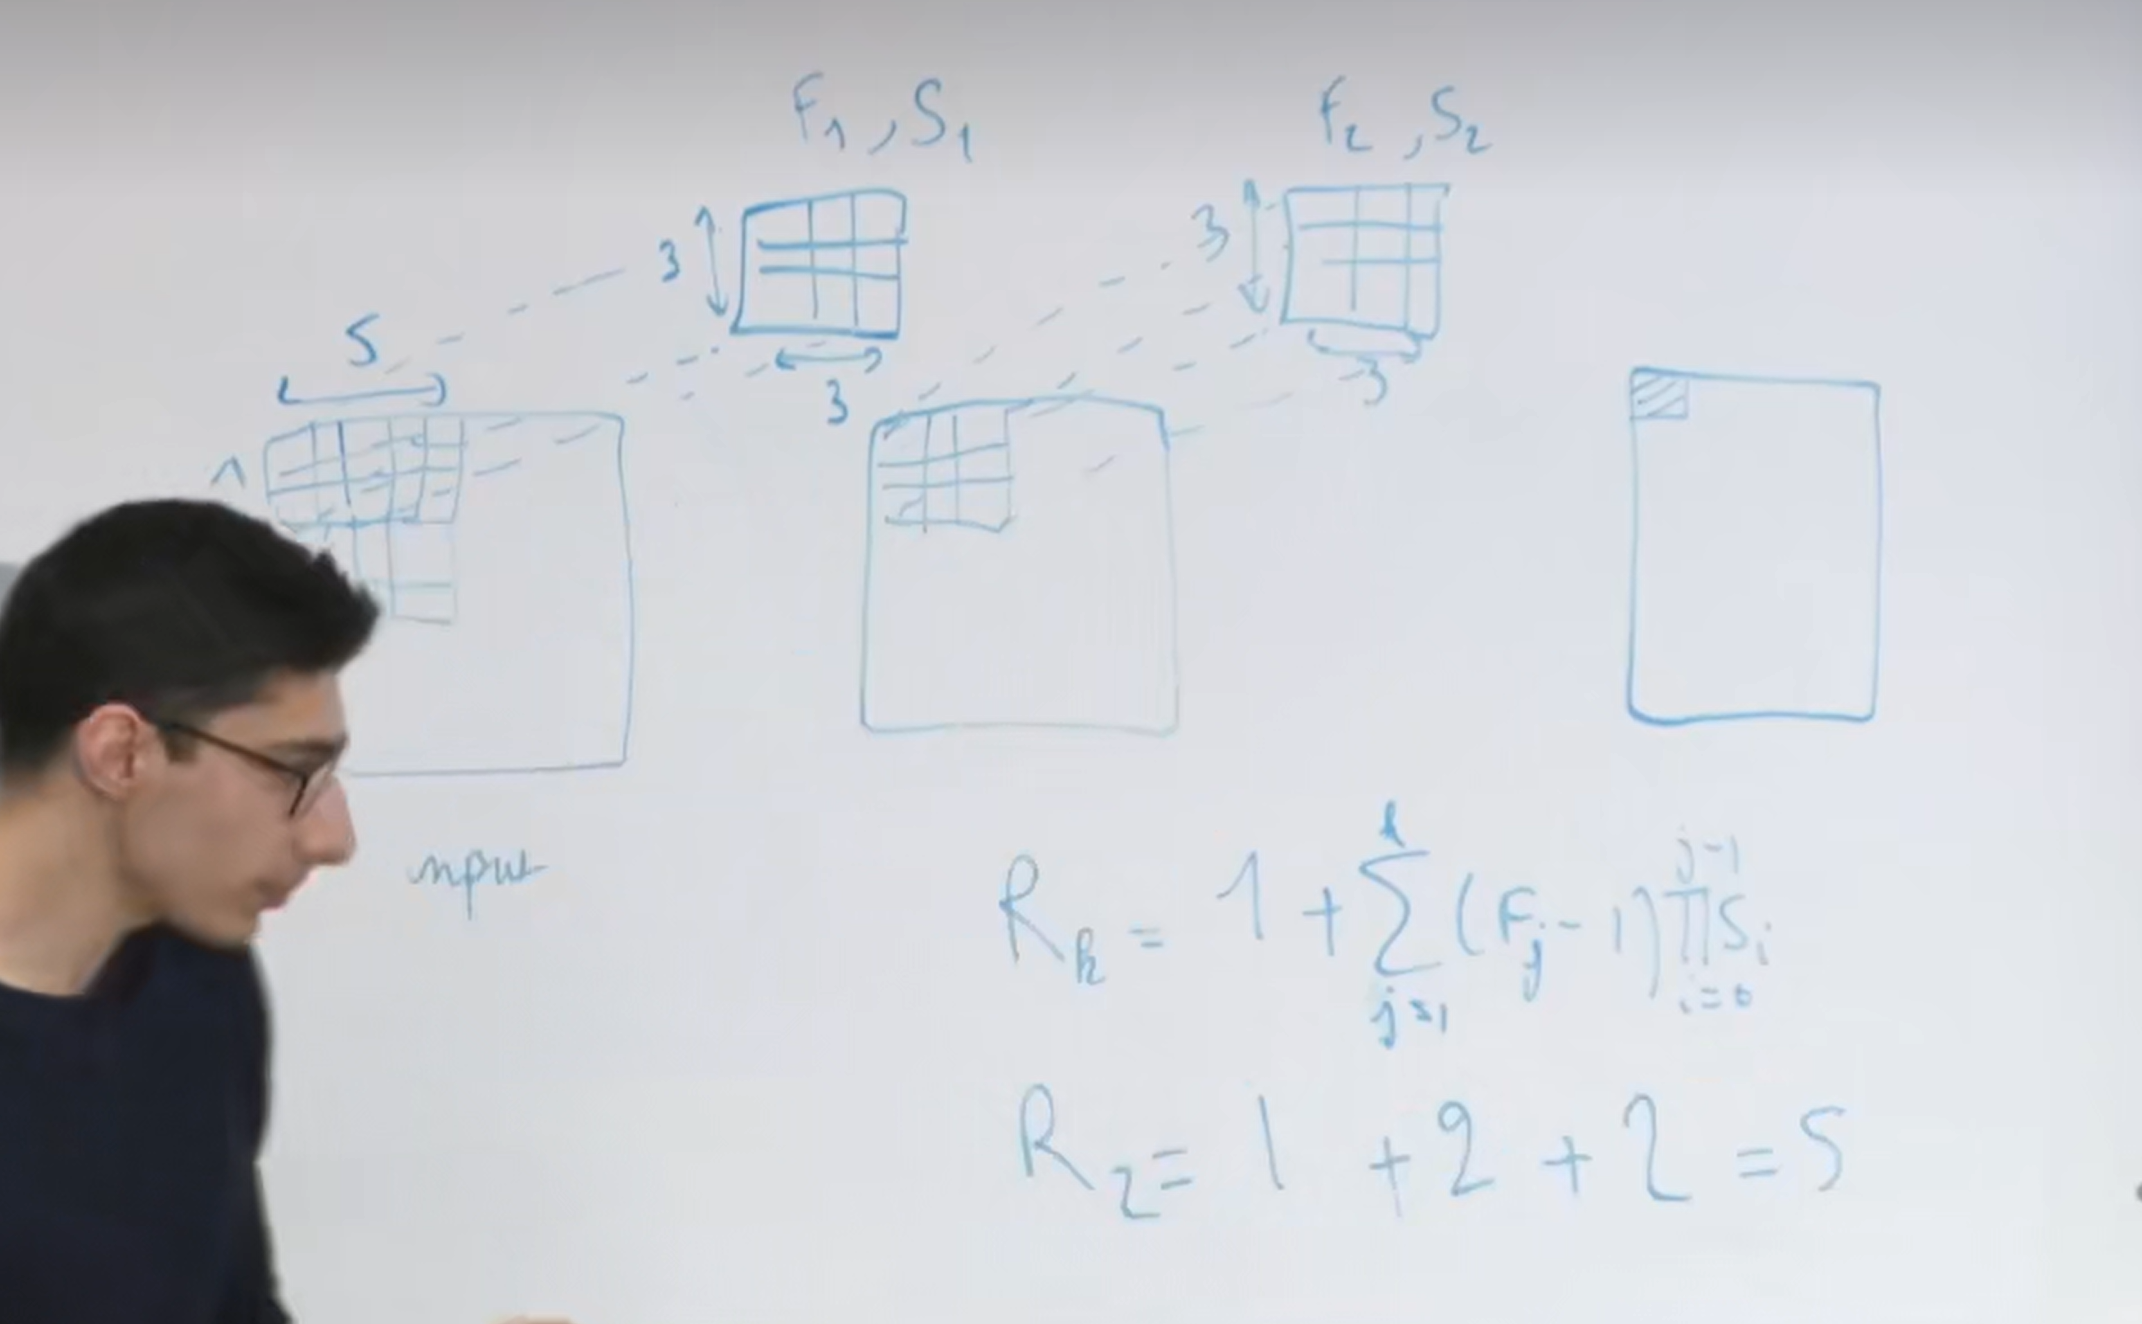 F₁, S₁
F₂, S₂
3
3
5
3
3
input
R_k = 1 + Σ_{j=1}^{k} (F_j - 1) Π_{i=0}^{j-1} S_i
R₂ = 1 + 2 + 2 = 5